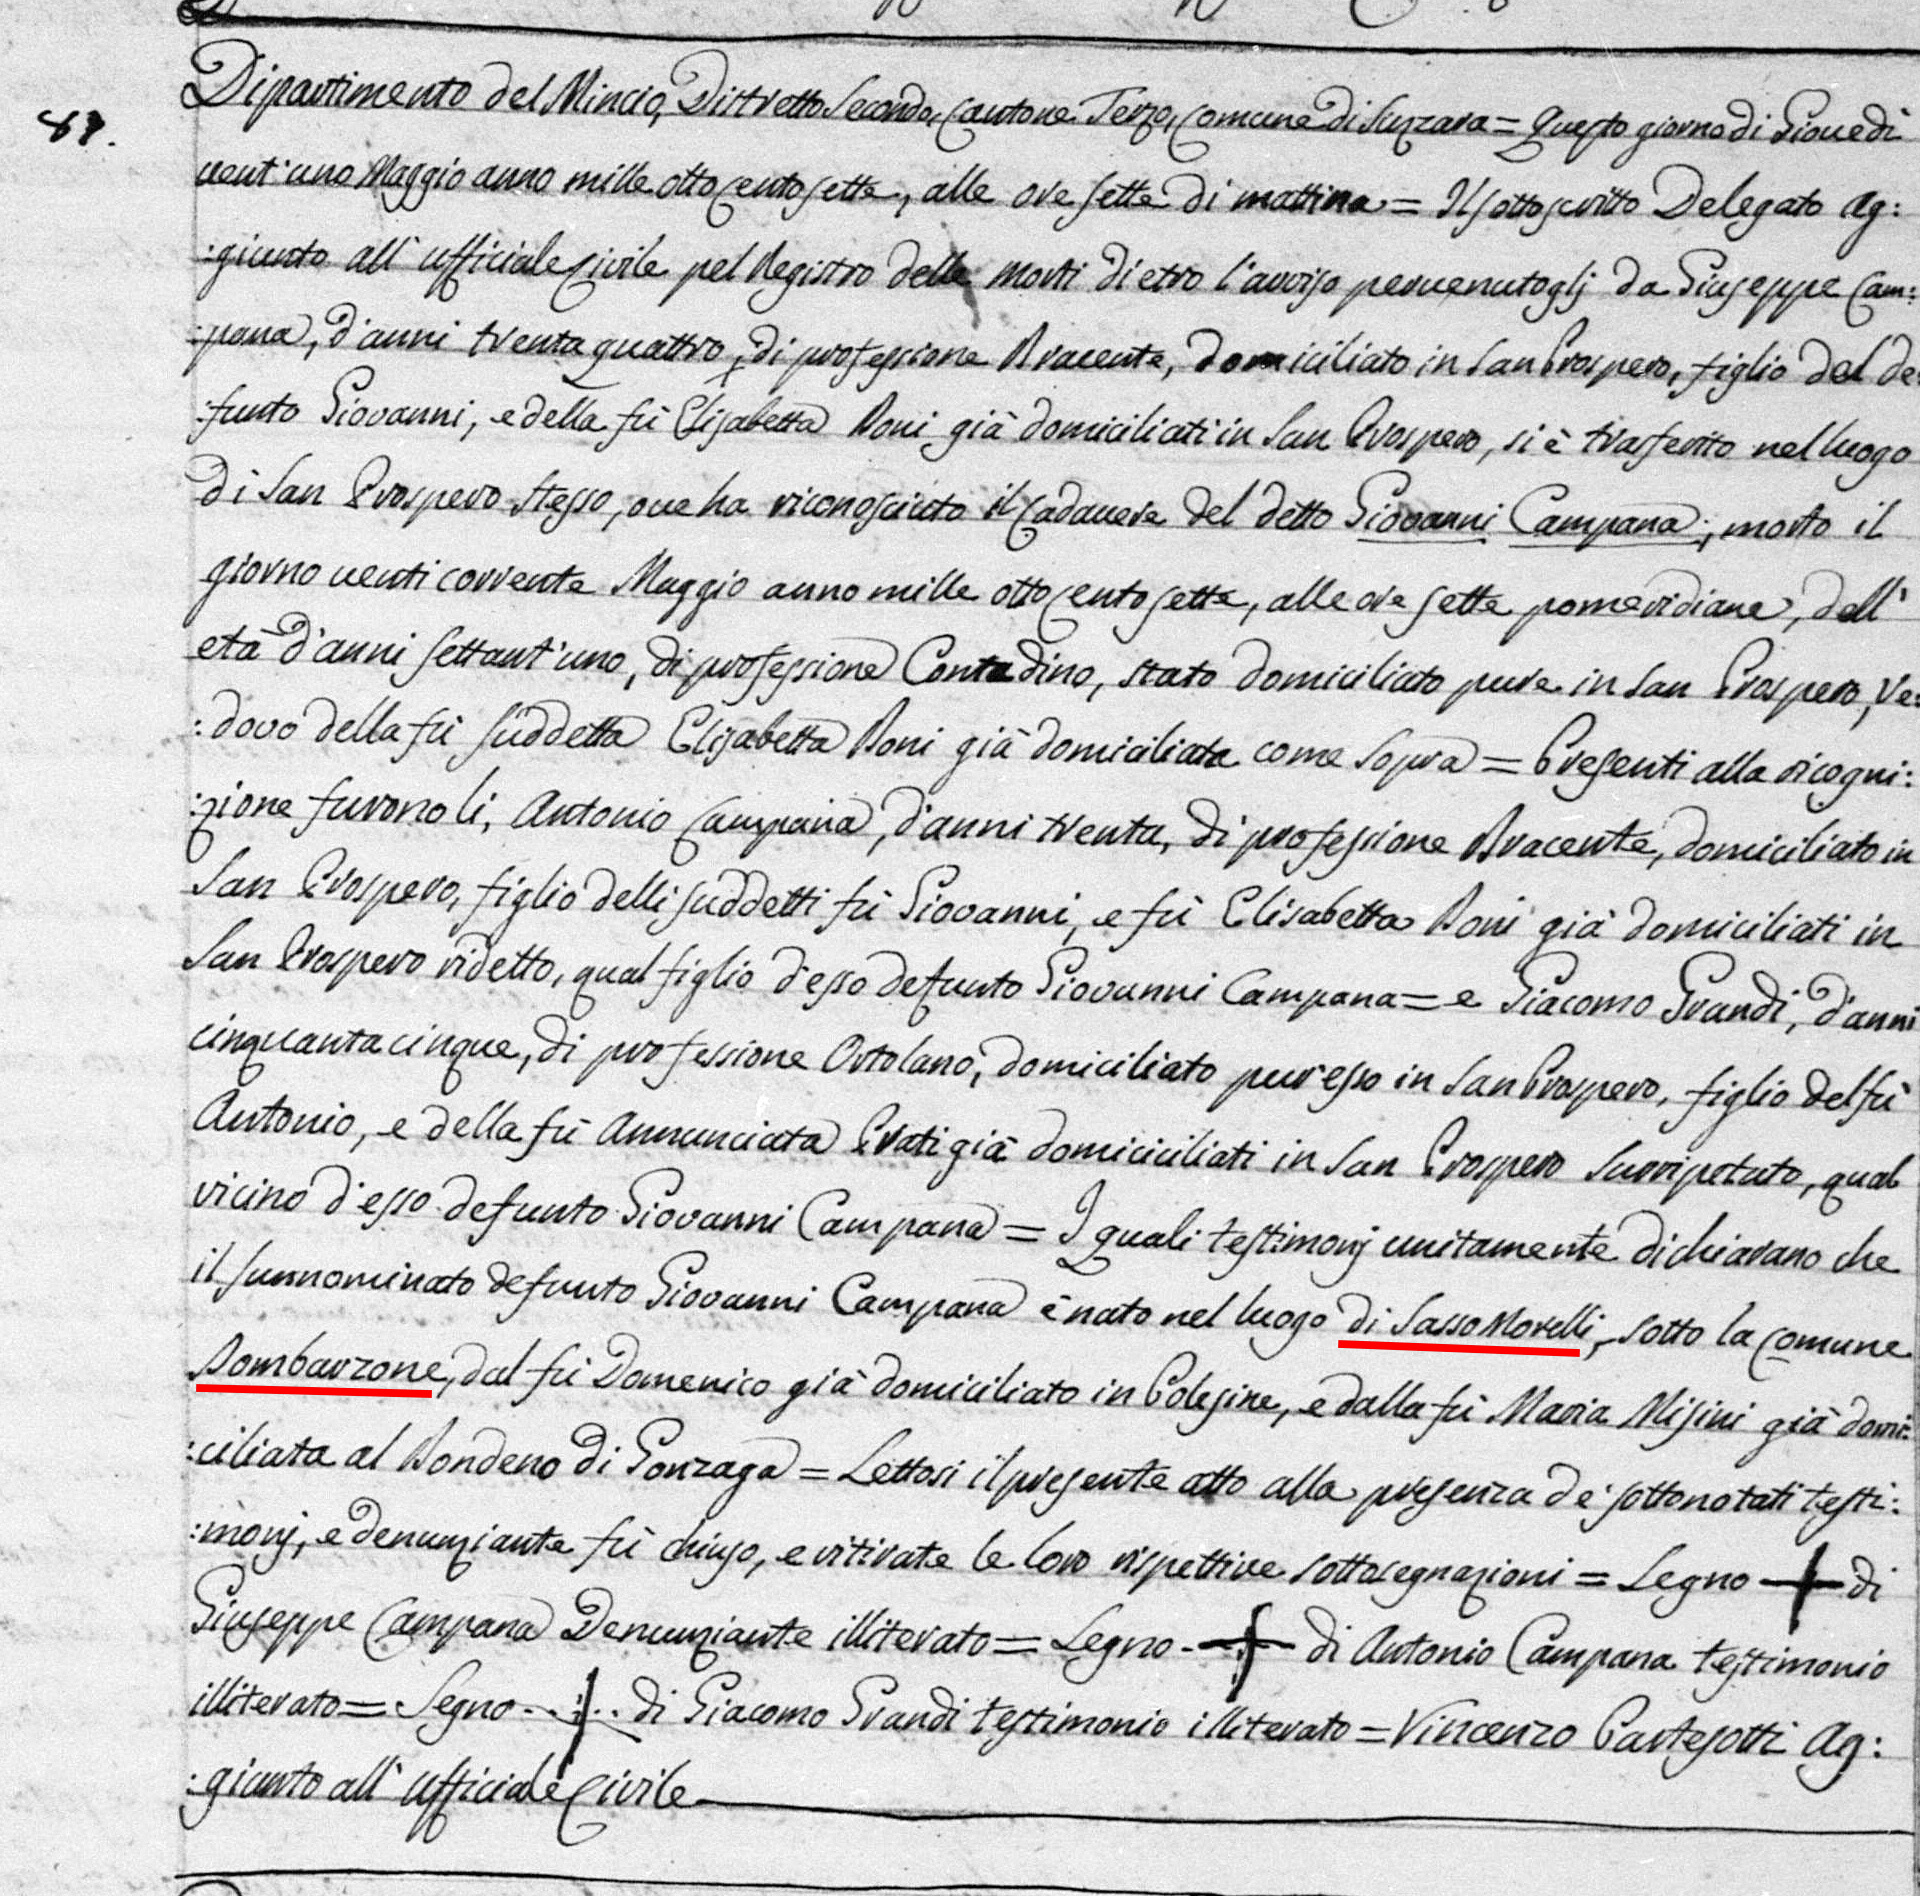 87.
Dipartimento del Mincio, Distretto Secondo, Cantone Terzo, Comune di Suzzara = Questo giorno di Giovedì
vent'uno Maggio anno mille otto cento sette, alle ore sette di mattina = Il sottoscritto Delegato Ag:
:giunto all'ufficiale Civile pel Registro delle Morti dietro l'avviso pervenutoglj da Giuseppe Cam:
:pana, d'anni trenta quattro, di professione Bracente, domiciliato in San Prospero, figlio del de:
:funto Giovanni, e della fù Elisabetta Boni già domiciliati in San Prospero, si è trasferito nel luogo
di San Prospero stesso, ove ha riconosciuto il Cadavere del detto Giovanni Campana; morto il
giorno venti corrente Maggio anno mille otto cento sette, alle ore sette pomeridiane, dell'
età d'anni settant'uno, di professione Contadino, stato domiciliato pure in San Prospero, Ve:
:dovo della fù suddetta Elisabetta Boni già domiciliata come sopra = Presenti alla ricogni:
:zione furono li, Antonio Campana, d'anni trenta, di professione Bracente, domiciliato in
San Prospero, figlio delli suddetti fù Giovanni, e fù Elisabetta Boni già domiciliati in
San Prospero ridetto, qual figlio d'esso defunto Giovanni Campana = e Giacomo Grandi, d'anni
cinquanta cinque, di professione Ortolano, domiciliato pur esso in San Prospero, figlio del fù
Antonio, e della fù Annunciata Prati già domiciciliati in San Prospero surripetuto, qual
vicino d'esso defunto Giovanni Campana = I quali testimonj unitamente dichiarano che
il sunnominato defunto Giovanni Campana è nato nel luogo di Sasso Morelli, sotto la Comune
Bombarzone, dal fù Domenico già domiciliato in Polesine, e dalla fù Maria Misini già domi:
:ciliata al Bondeno di Gonzaga = Lettosi il presente atto alla presenza de' sottonotati testi:
:monj, e denunziante fù chiuso, e ritirate le loro rispettive sottosegnazioni = Segno + di
Giuseppe Campana Denunziante illiterato = Segno + di Antonio Campana testimonio
illiterato = Segno + di Giacomo Grandi testimonio illiterato = Vincenzo Partesotti Ag:
:giunto all'ufficiale Civile